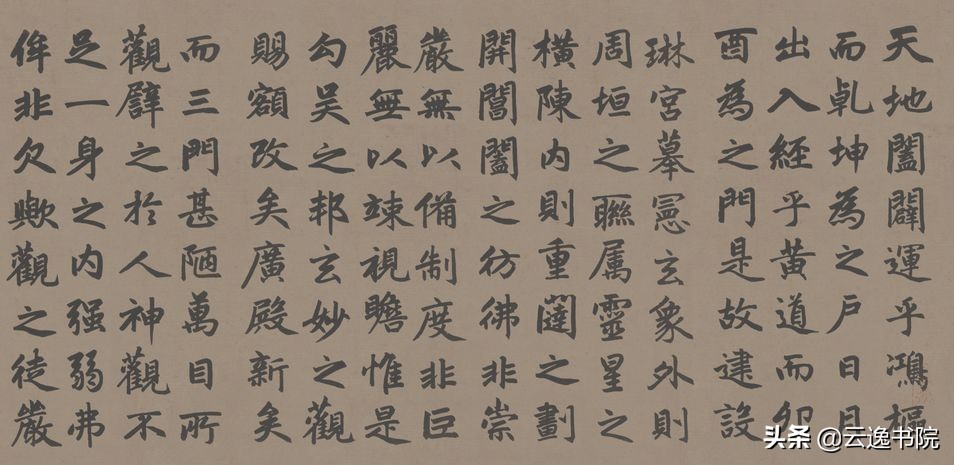 天地闔闢運乎鴻樞
而乹坤為之户日月
出入經乎黃道而卯
酉為之門是故建設
琳宮摹憲玄象外則
周垣之聯属靈星之
橫陳内則重闥之劃
開閶闔之彷彿非崇
嚴無以備制度非巨
麗無以竦視瞻惟是
勾吴之邦玄妙之觀
賜額改矣廣殿新矣
而三門甚陋萬目所
觀譬之於人神觀不
足一身之内强弱弗
侔非欠歟觀之徒嚴
头条 @云逸书院